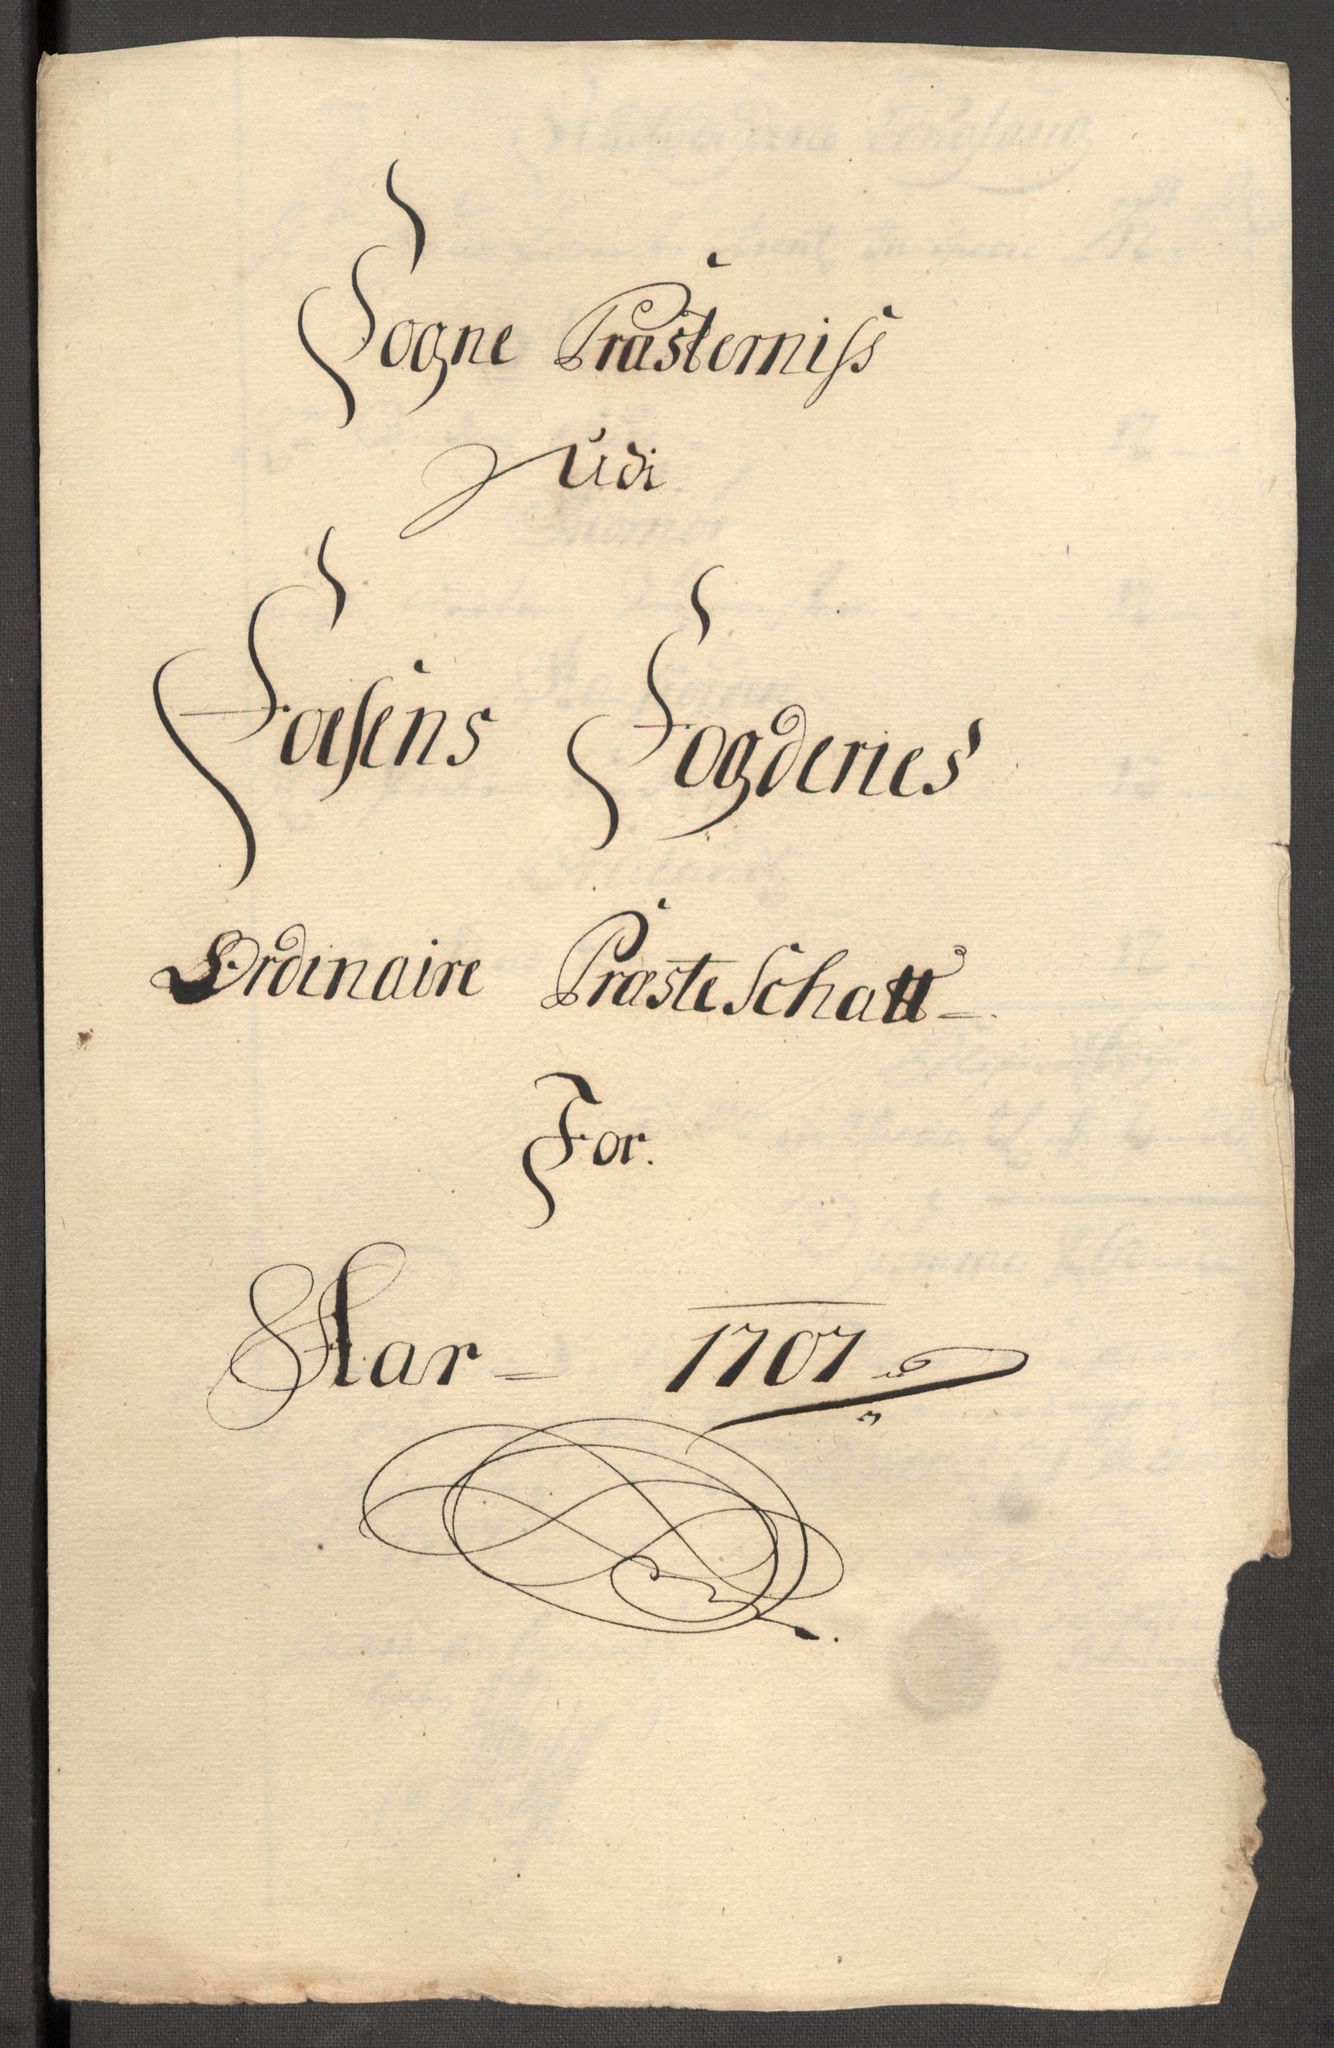 Sogne Præsterniss
Udi
Foesens Fogderies
Ordinaire Præste Schatt
For.
Aar 1707